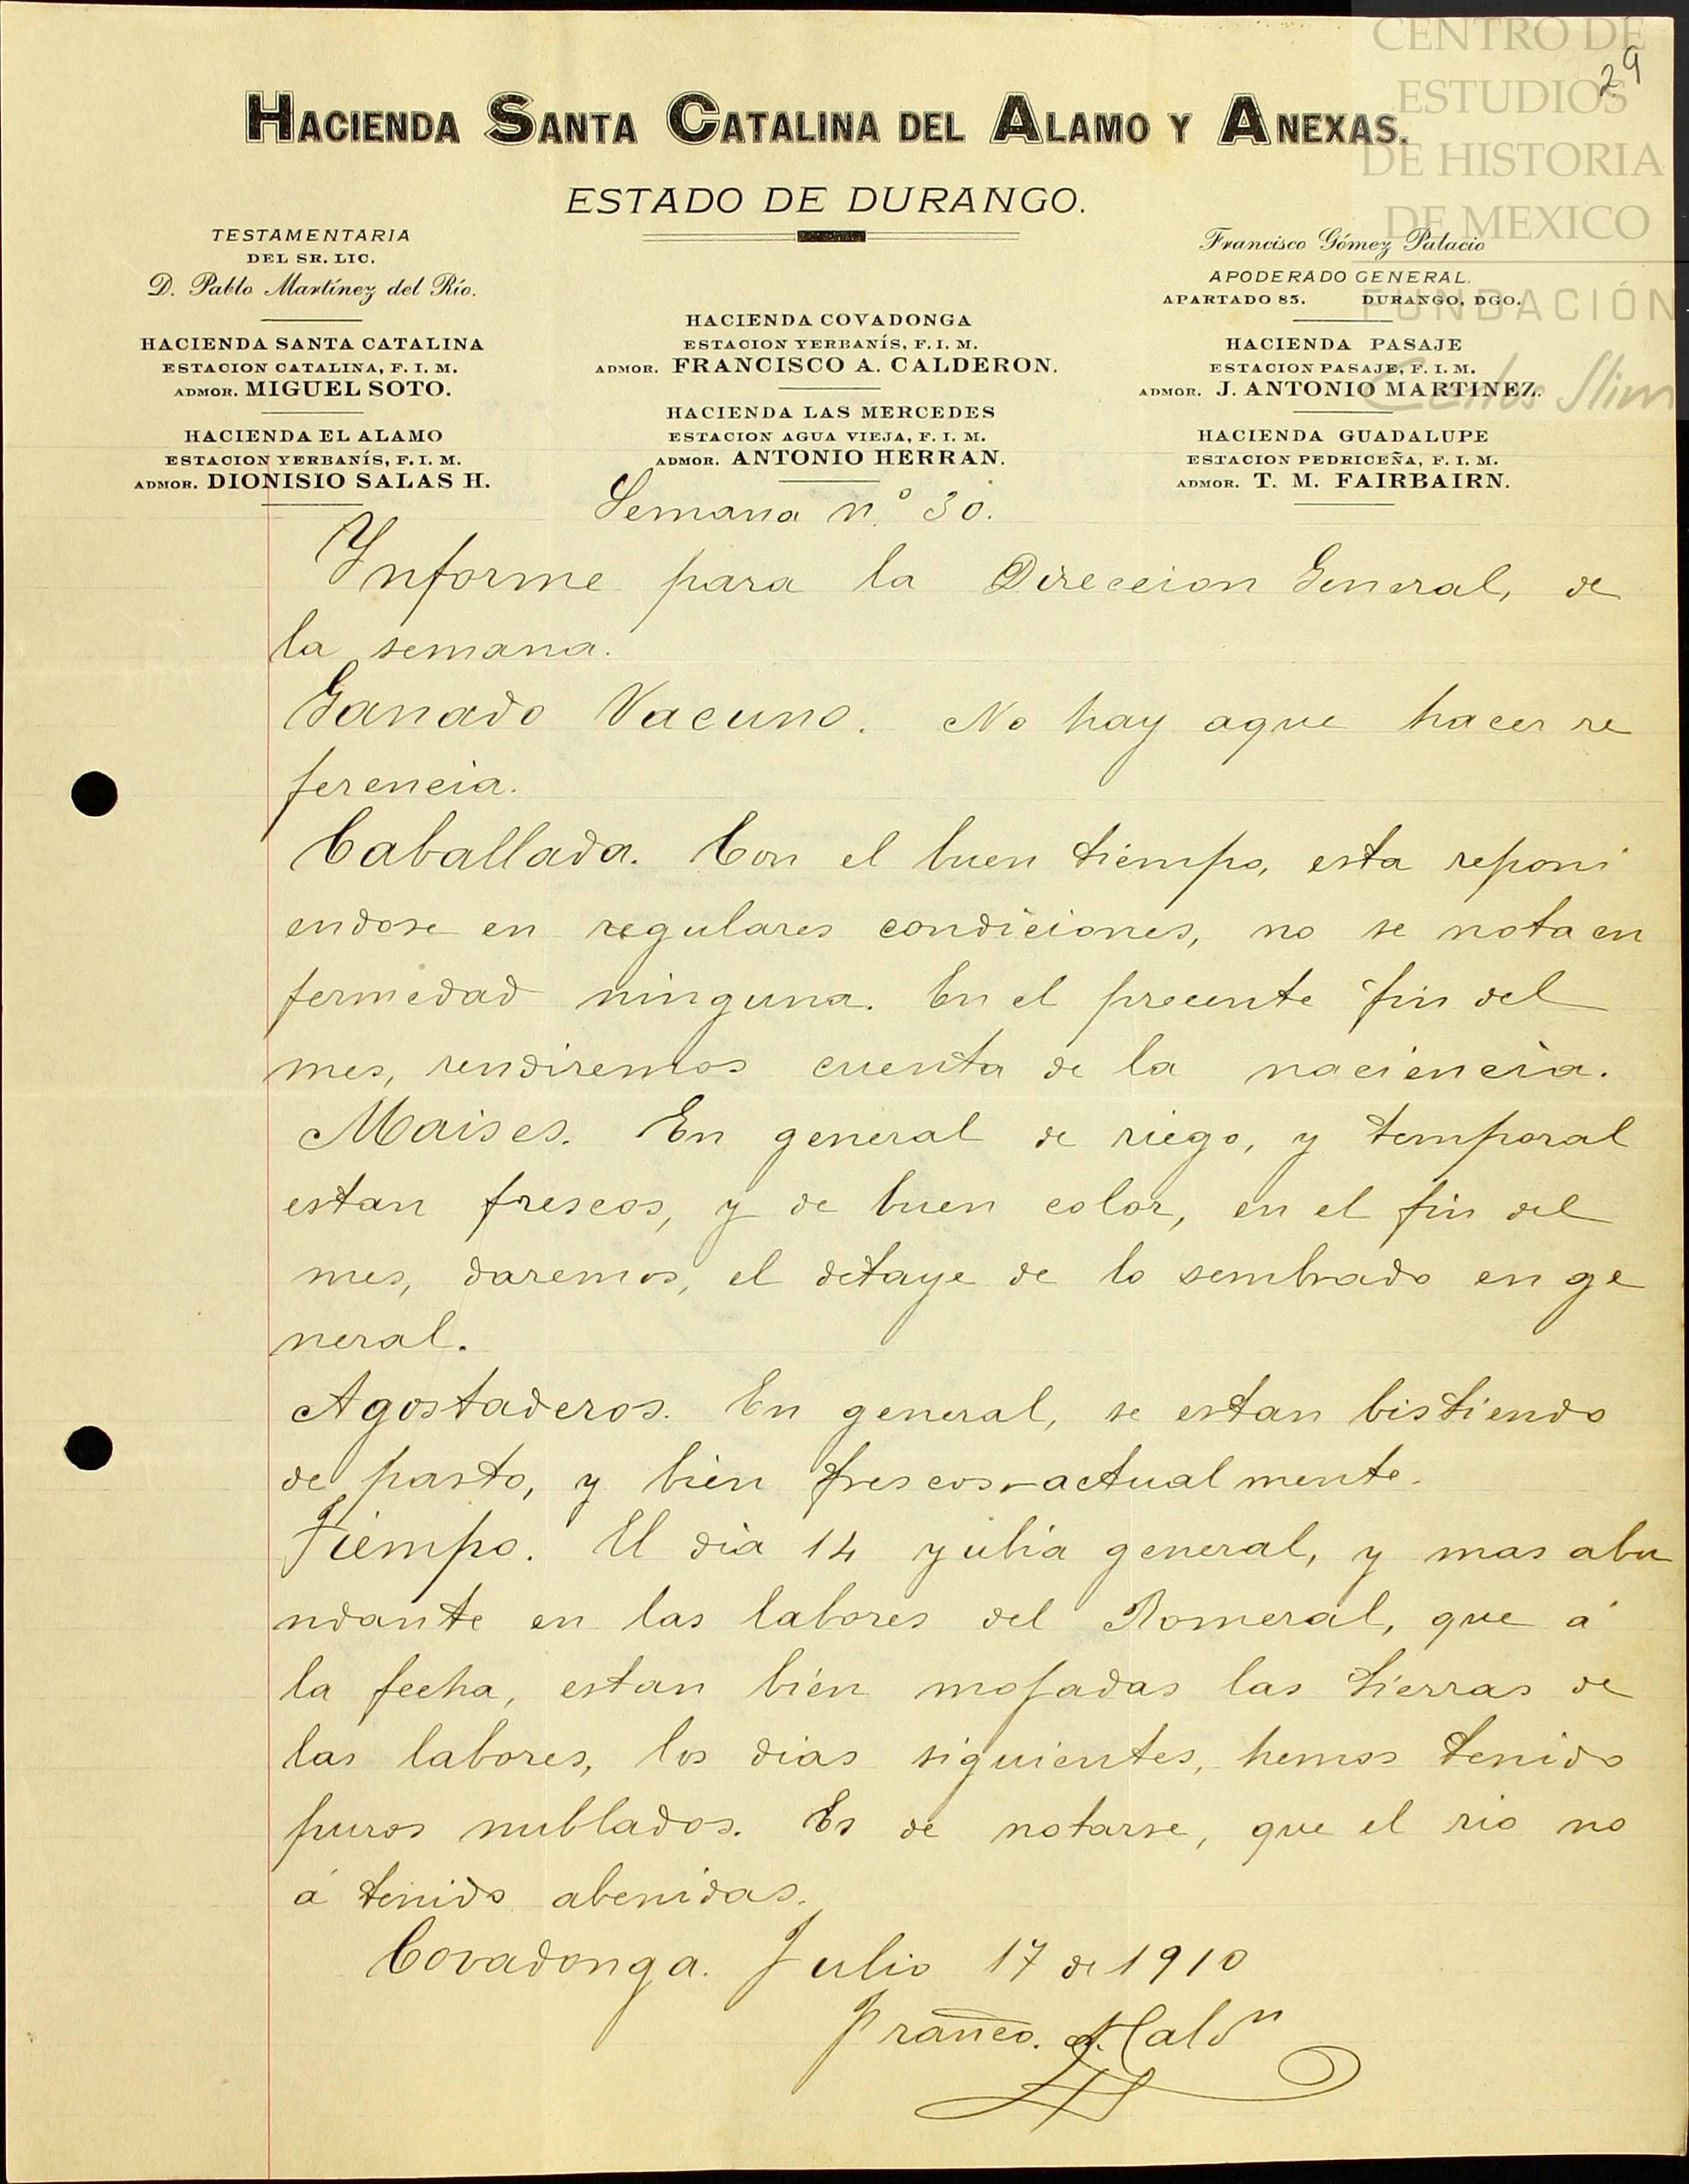 29
CENTRO DE
ESTUDIOS
DE HISTORIA
DE MEXICO
FUNDACIÓN
Carlos Slim
HACIENDA SANTA CATALINA DEL ALAMO Y ANEXAS.
ESTADO DE DURANGO.
TESTAMENTARIA
DEL SR. LIC.
D. Pablo Martínez del Río.
HACIENDA SANTA CATALINA
ESTACION CATALINA, F. I. M.
ADMOR. MIGUEL SOTO.
HACIENDA EL ALAMO
ESTACION YERBANÍS, F. I. M.
ADMOR. DIONISIO SALAS H.
HACIENDA COVADONGA
ESTACION YERBANÍS, F. I. M.
ADMOR. FRANCISCO A. CALDERON.
HACIENDA LAS MERCEDES
ESTACION AGUA VIEJA, F. I. M.
ADMOR. ANTONIO HERRAN.
Francisco Gómez Palacio
APODERADO GENERAL.
APARTADO 85. DURANGO, DGO.
HACIENDA PASAJE
ESTACION PASAJE, F. I. M.
ADMOR. J. ANTONIO MARTINEZ.
HACIENDA GUADALUPE
ESTACION PEDRICEÑA, F. I. M.
ADMOR. T. M. FAIRBAIRN.
Semana n.º 30.
Ynforme para la Direccion General, de
la semana.
Ganado Vacuno. No hay aque hacer re
ferencia.
Caballada. Con el buen tiempo, esta reponi
endose en regulares condiciones, no se nota en
fermedad ninguna. En el precente fin del
mes, rendiremos cuenta de la naciencia.
Maises. En general de riego, y temporal
estan frescos, y de buen color, en el fin del
mes, daremos, el detaye de lo sembrado en ge
neral.
Agostaderos. En general, se estan bistiendo
de pasto, y bien frescos actualmente.
Tiempo. El dia 14 yubia general, y mas abu
ndante en las labores del Romeral, que á
la fecha, estan bien mojadas las tierras de
las labores, los dias siguientes, hemos tenido
puros nublados. Es de notarse, que el rio no
á tenido abenidas.
Covadonga. Julio 17 de 1910
Franco. A. Caldn